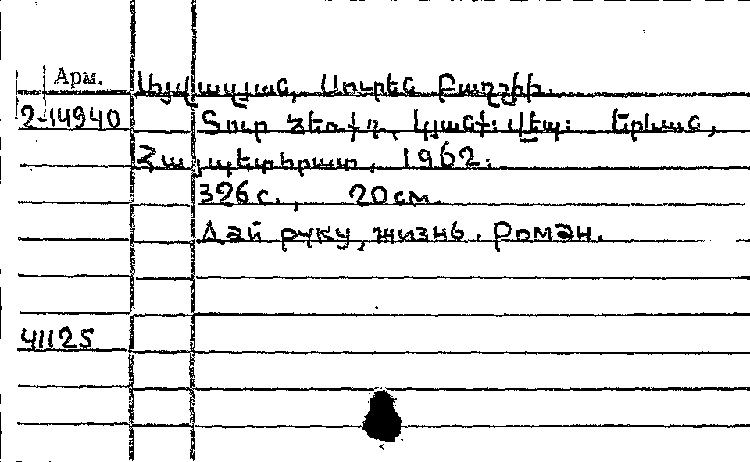 Арм.
Այվազյան, Սուրեն Բաղշիի.
2-14940
Տուր ձեռքդ, կյանք։ Վեպ։ Երևան,
Հայպետհրատ, 1962։
326 с., 20 см.
Дай руку, жизнь. Роман.
41125